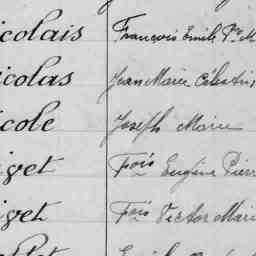 icolais François Emile Pre M
icolas Jean Marie Célestin
icole Joseph Marie
ivet Fois Eugène Pierr
ivet Fois Victor Mari